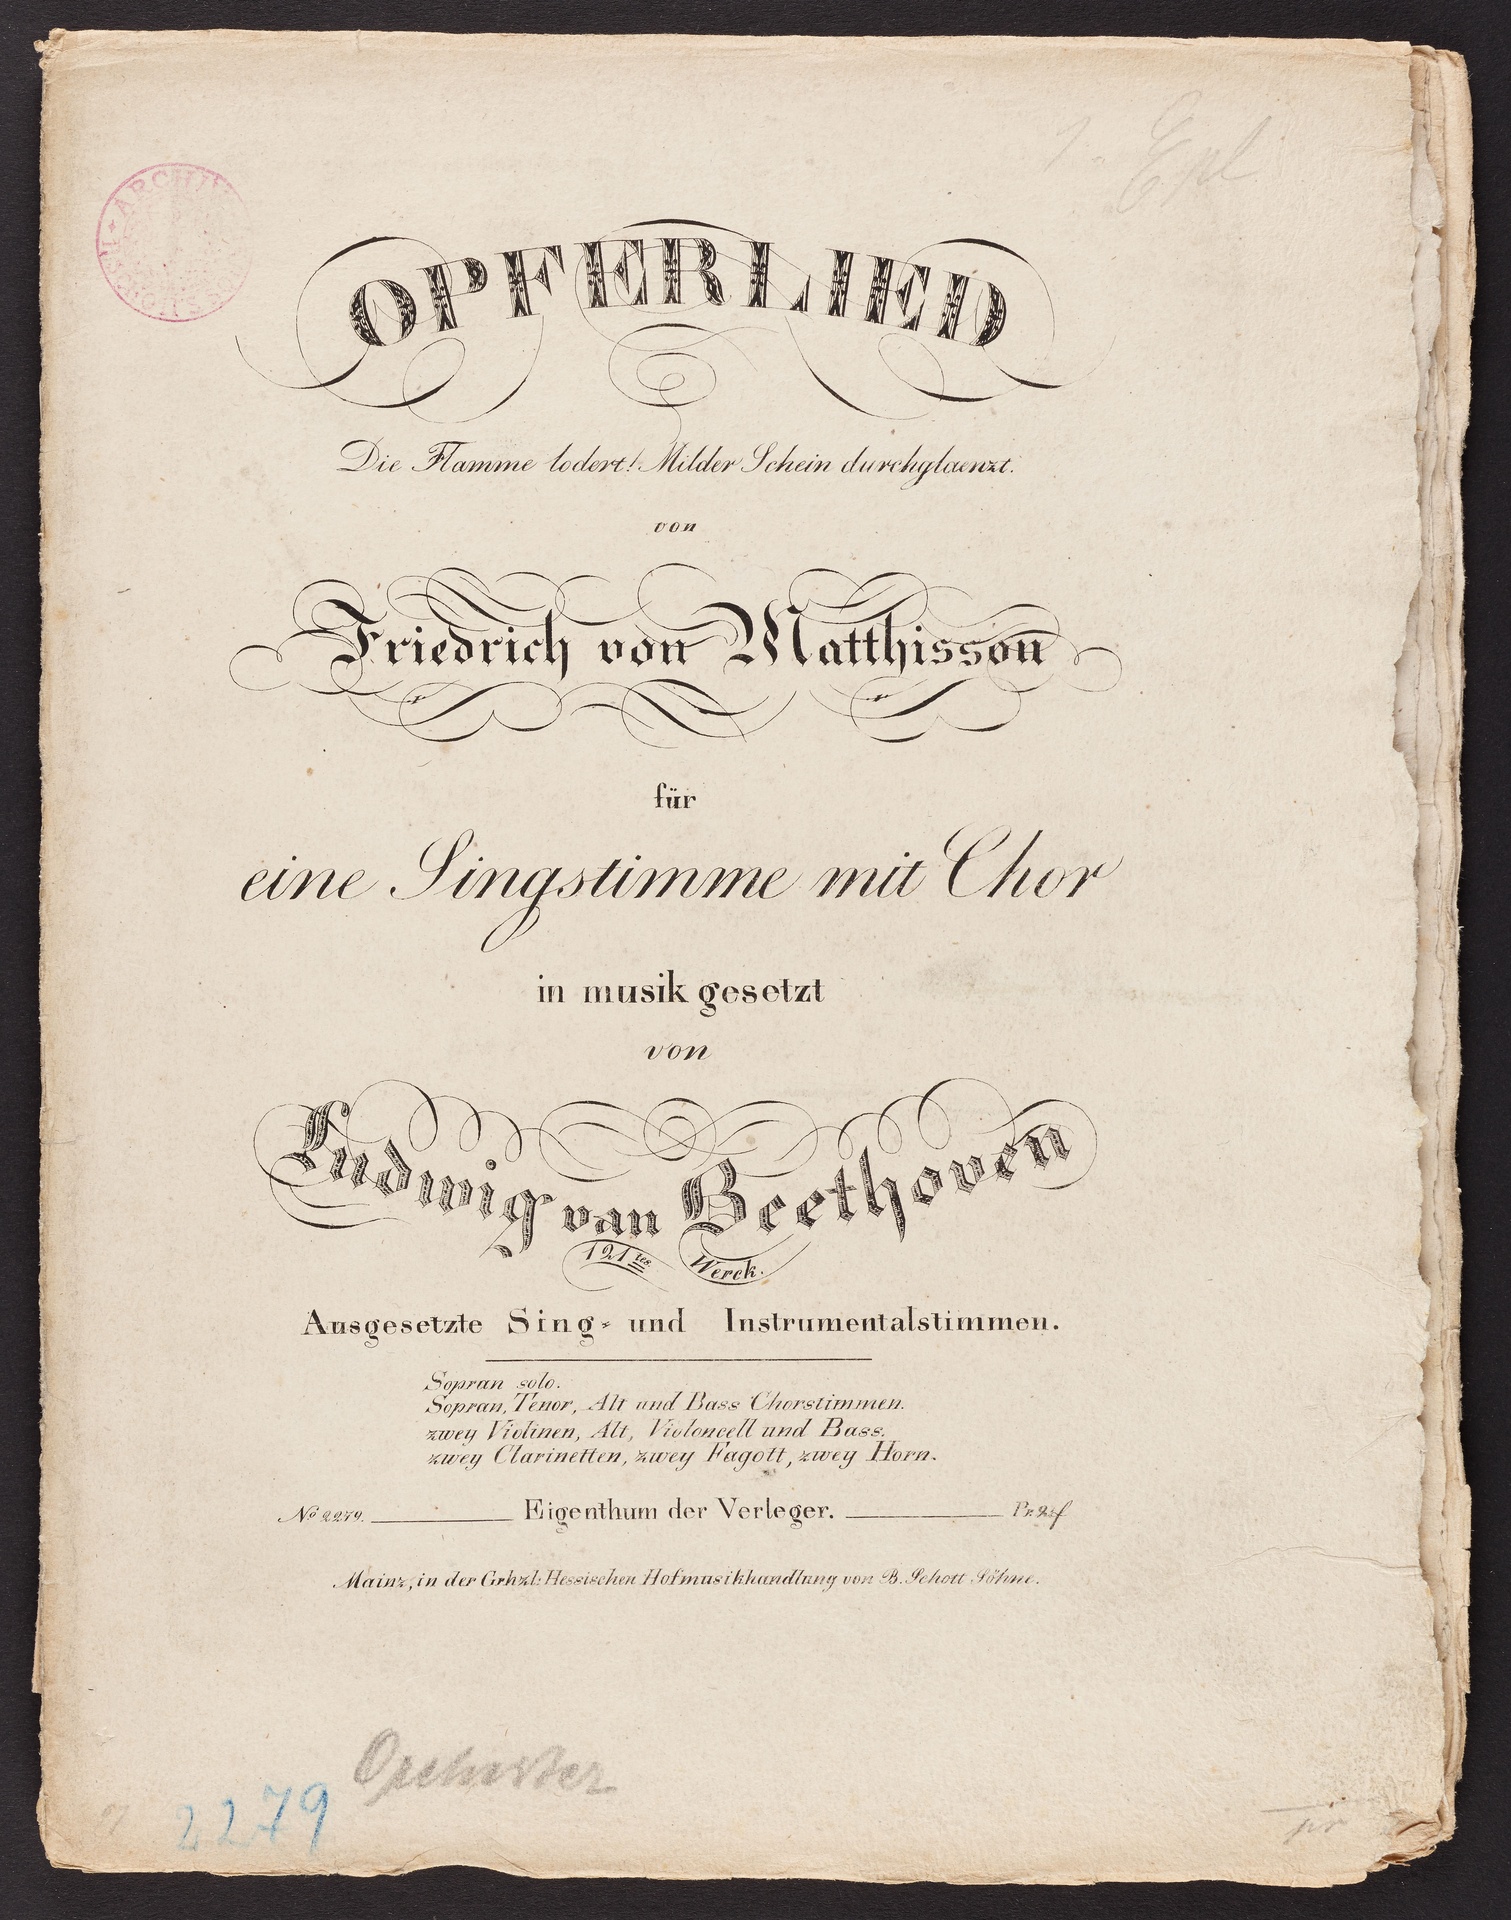 1. Expl
ARCHIV
OPFERLIED
Die Flamme lodert! Milder Schein durchglaenzt.
von
Friedrich von Matthisson
für
eine Singstimme mit Chor
in musik gesetzt
von
Ludwig van Beethoven
121tes Werck.
Ausgesetzte Sing- und Instrumentalstimmen.
Sopran solo.
Sopran, Tenor, Alt und Bass Chorstimmen.
zwey Violinen, Alt, Violoncell und Bass.
zwey Clarinetten, zwey Fagott, zwey Horn.
No 2279. Eigenthum der Verleger. Pr. 2f
Mainz, in der Grhzl: Hessischen Hofmusikhandlung von B. Schott Söhne.
Orchester
2279